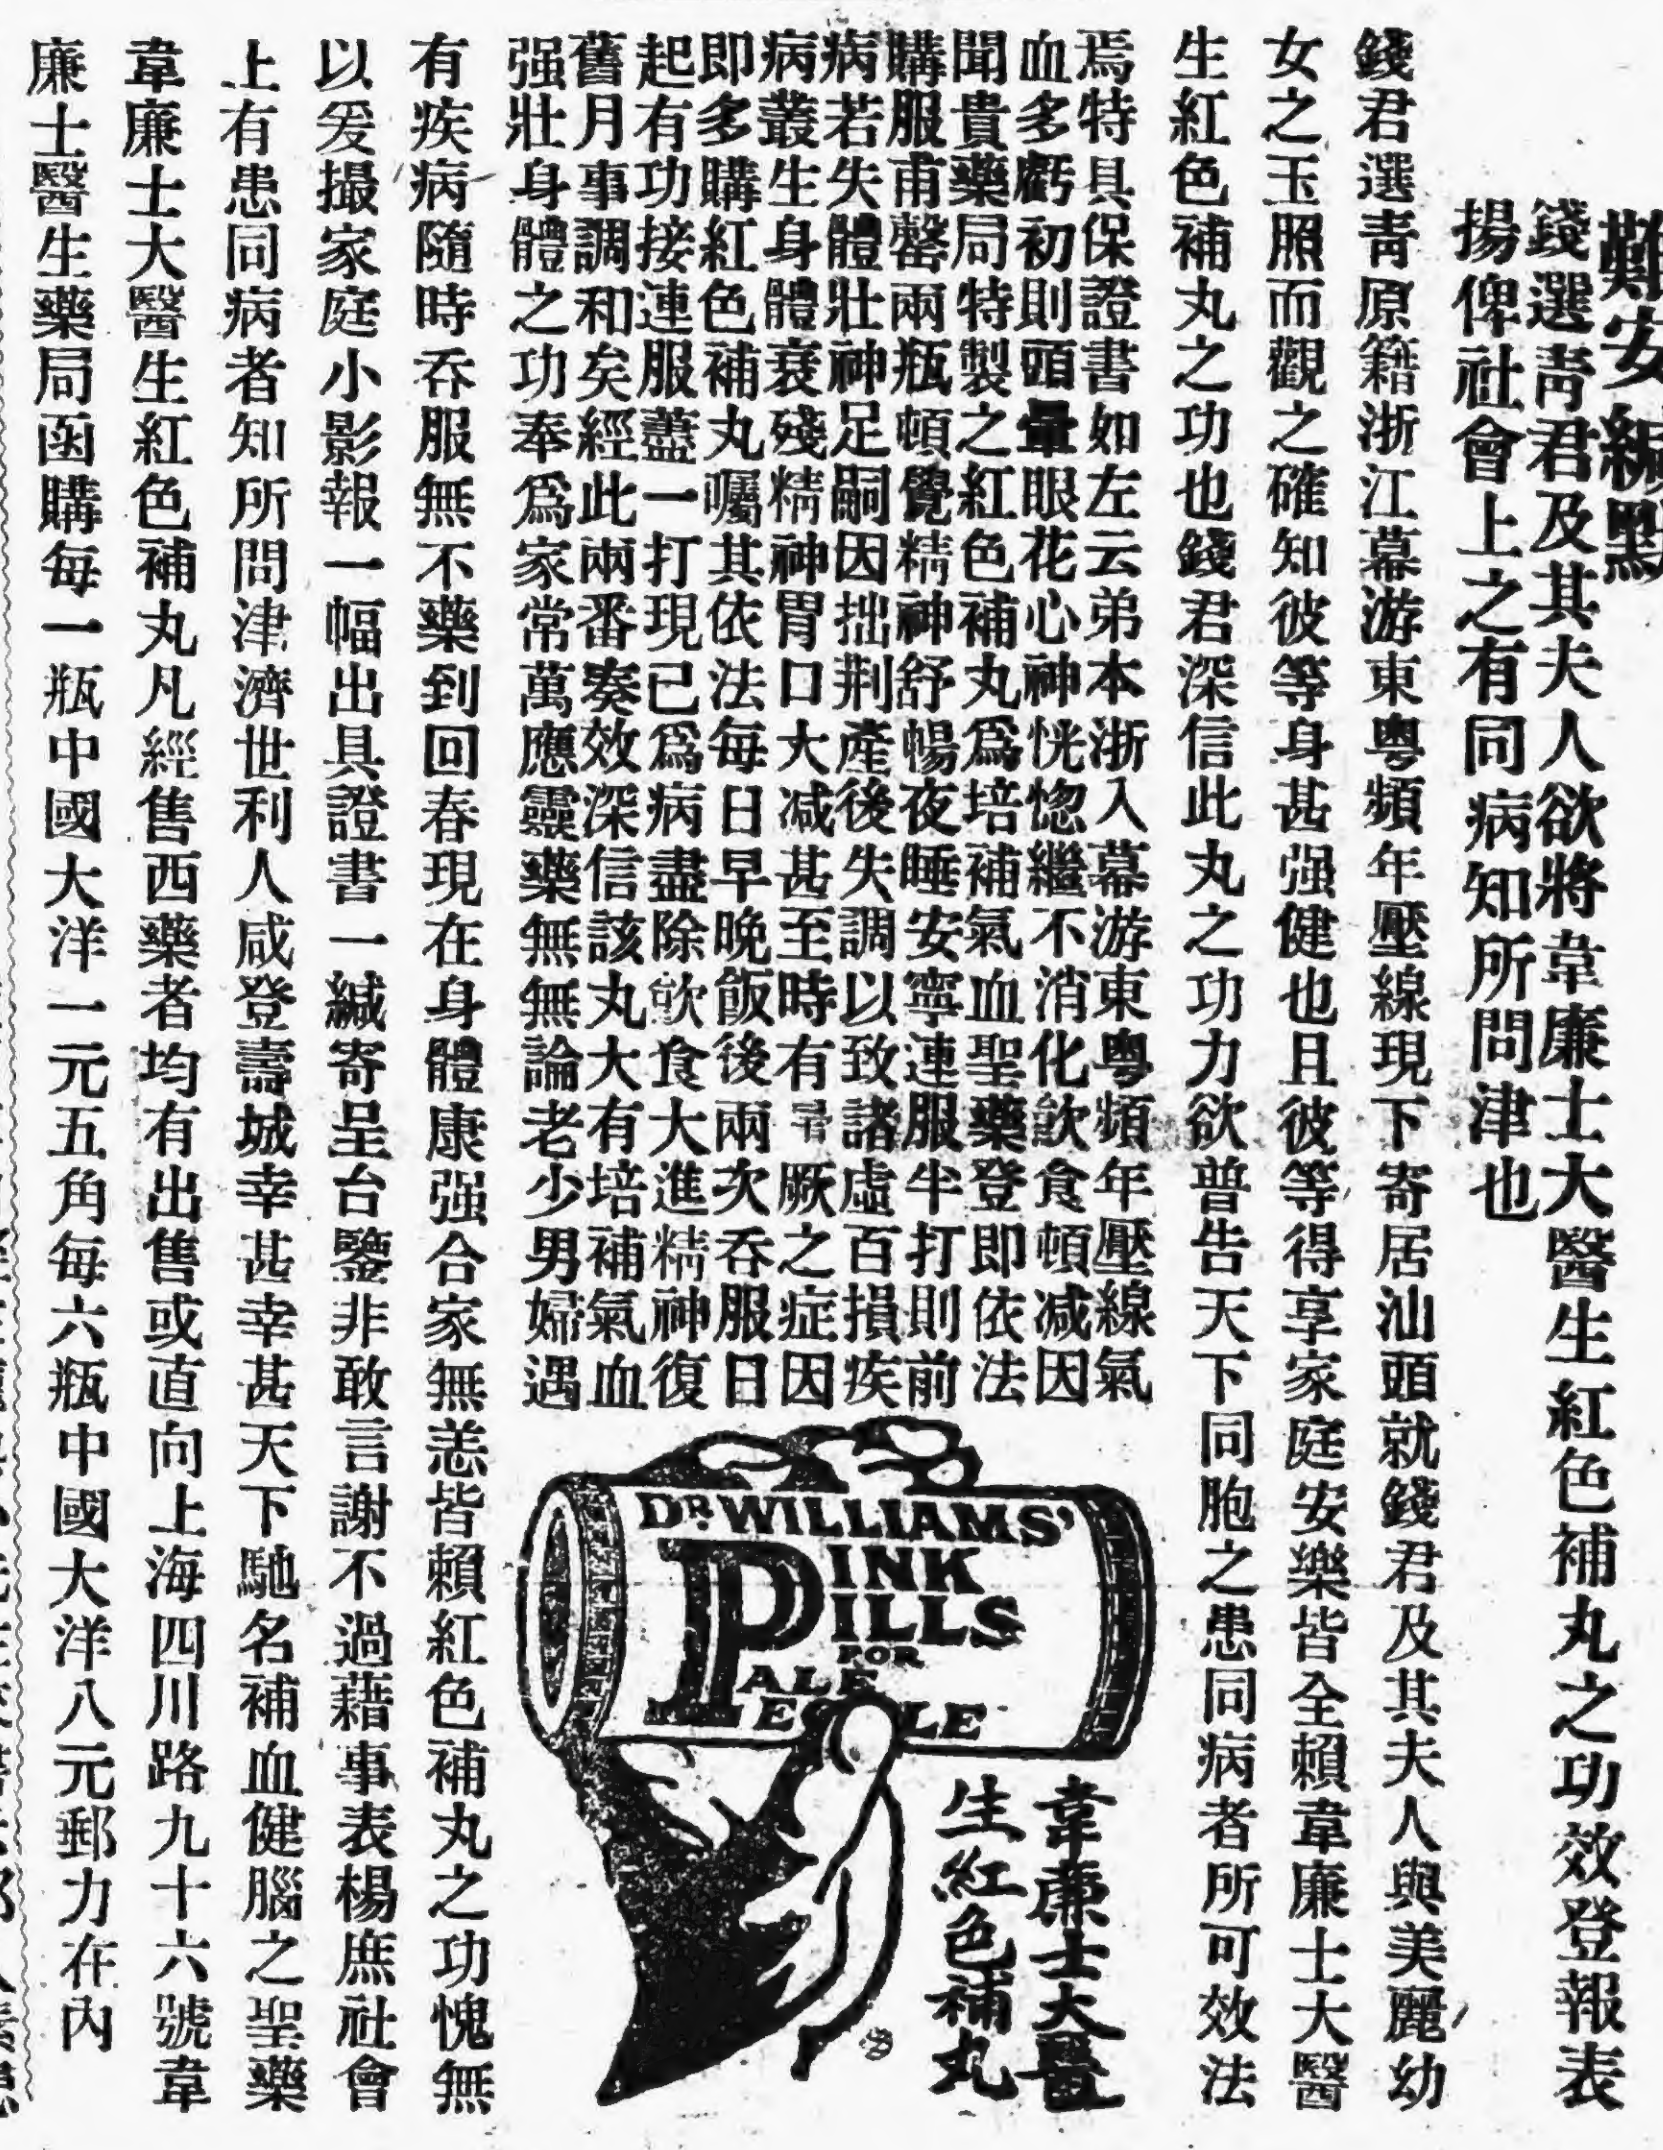 難安緘默
錢選青君及其夫人欲將韋廉士大醫生紅色補丸之功效登報表
揚俾社會上之有同病知所問津也
錢君選青原籍浙江幕游東粵頻年壓線現下寄居汕頭就錢君及其夫人與美麗幼
女之玉照而觀之確知彼等身甚强健也且彼等得享家庭安樂皆全賴韋廉士大醫
生紅色補丸之功也錢君深信此丸之功力欲普告天下同胞之患同病者所可效法
焉特具保證書如左云弟本浙入幕游東粵頻年壓線氣
血多虧初則頭暈眼花心神恍惚繼不消化飲食頓减因
聞貴藥局特製之紅色補丸爲培補氣血聖藥登即依法
購服甫罄兩瓶頓覺精神舒暢夜睡安寧連服半打則前
病若失體壯神足嗣因拙荆產後失調以致諸虛百損疾
病叢生身體衰殘精神胃口大减甚至時有昏厥之症因
即多購紅色補丸囑其依法每日早晚飯後兩次吞服日
起有功接連服藎一打現已爲病盡除飲食大進精神復
舊月事調和矣經此兩番奏效深信該丸大有培補氣血
强壯身體之功奉爲家常萬應靈藥無無論老少男婦遇
有疾病隨時吞服無不藥到回春現在身體康强合家無恙皆賴紅色補丸之功愧無
以爰撮家庭小影報一幅出具證書一緘寄呈台鑒非敢言謝不過藉事表楊庶社會
上有患同病者知所問津濟世利人咸登壽城幸甚幸甚天下馳名補血健腦之聖藥
韋廉士大醫生紅色補丸凡經售西藥者均有出售或直向上海四川路九十六號韋
廉士醫生藥局函購每一瓶中國大洋一元五角每六瓶中國大洋八元郵力在內
DR. WILLIAMS'
PINK
PILLS
FOR
PALE
PEOPLE
韋廉士大醫
生紅色補丸